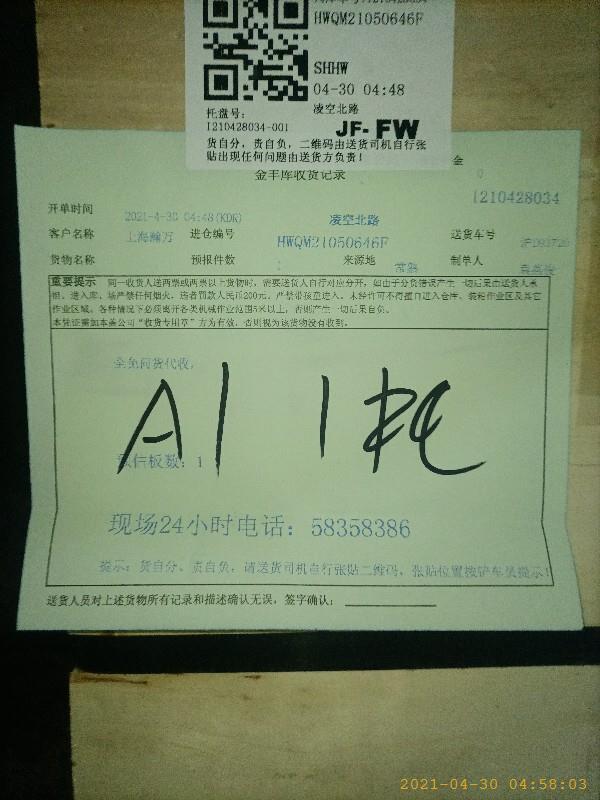 HWQM21050646F
SHHW
04-30 04:48
凌空北路
托盘号:
I210428034-001
JF-FW
货自分，责自负，二维码由送货司机自行张
贴出现任何问题由送货方负责！
金
金丰库收货记录
I210428034
开单时间 2021-4-30 04:48(KDR) 凌空北路
客户名称 上海瀚万 进仓编号 HWQM21050646F 送货车号
货物名称 预报件数 : 来源地 常熟 制单人
重要提示 同一收货人送两票或两票以上货物时，需要送货人自行对应分开，如由于分货错误产生一切后果由送货人承
担。进入库、场严禁任何烟火，违者罚款人民币200元。严禁带孩童进入。未经许可不得擅自进入仓库、装箱作业区及其它
作业区域。各种情况下必须离开各类机械作业范围5米以上，否则产生一切后果自负。
本凭证需加本盖公司“收货专用章”方为有效，否则视为该货物没有收到。
A1 1托
板数: 1
现场24小时电话: 58358386
提示: 货自分、责自负，请送货司机自行张贴二维码，张贴位置按铲车员提示!
送货人员对上述货物所有记录和描述确认无误，签字确认:
2021-04-30 04:58:03